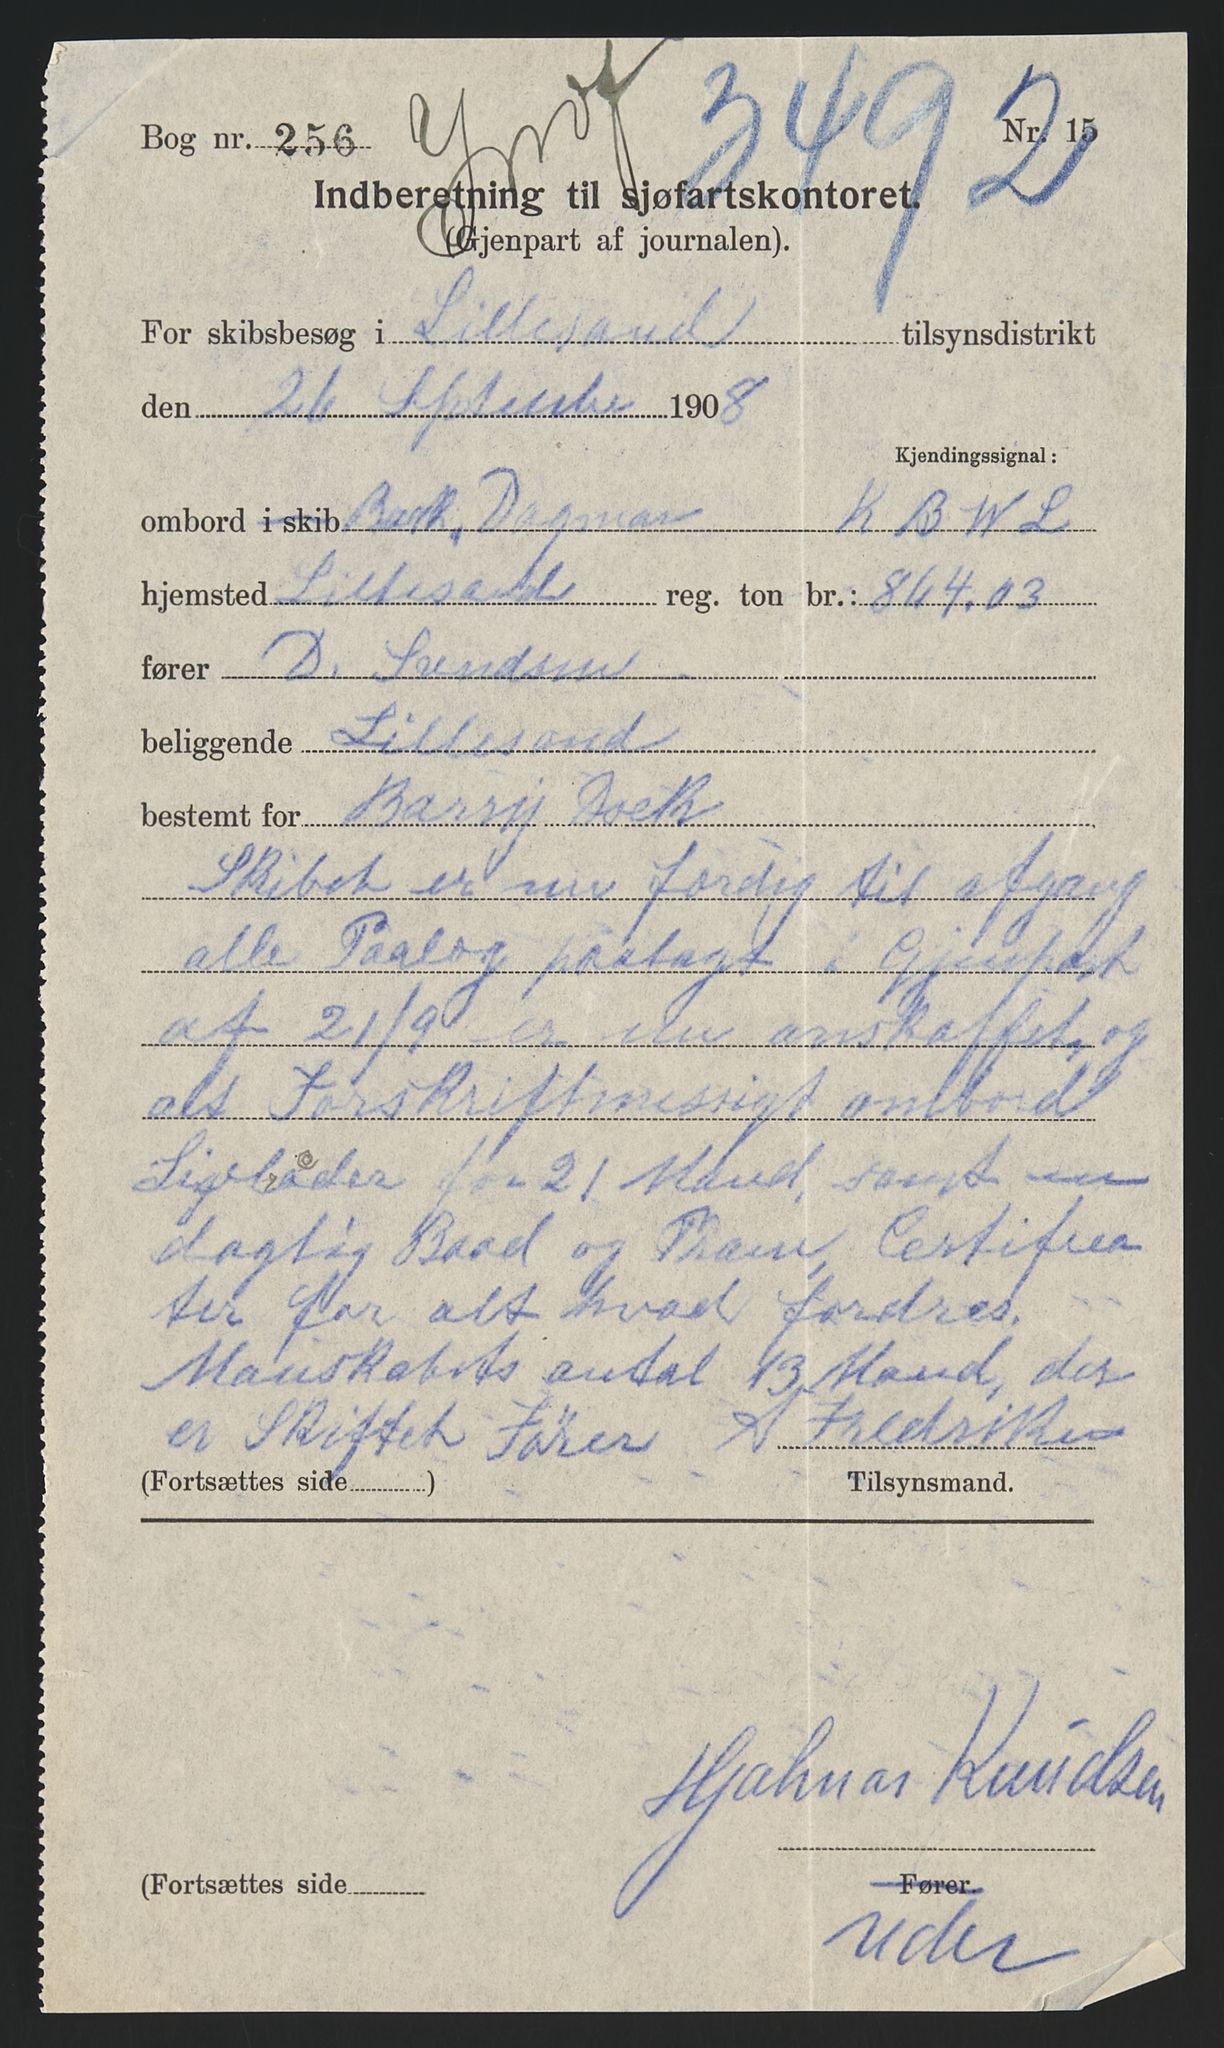 Bog nr. 256
3492
Nr. 15
Indberetning til sjøfartskontoret.
(Gjenpart af journalen).
For skibsbesøg i Lillesand tilsynsdistrikt
den 26 September 1908
Kjendingssignal:
ombord i skib Bark, Dagmar K B W L
hjemsted Lillesand reg. ton br.: 864.03
fører D. Svendsen
beliggende Lillesand
bestemt for Barry Dock
Skibet er nu færdig til afgang
alle Paalæg paalagt i Gjenpart
af 21/9 er nu anskaffet, og
alt Forskriftmessigt ombord
Livbåder for 21 Mand, samt en
daglig Baad og Pram, Certifica
ter for alt hvad fordres.
Manskabets antal 13 Mand, der
er Skiftet Fører A Fredriksen
(Fortsættes side )
Tilsynsmand.
Hjalmar Knudsen
(Fortsættes side
Fører.
reder